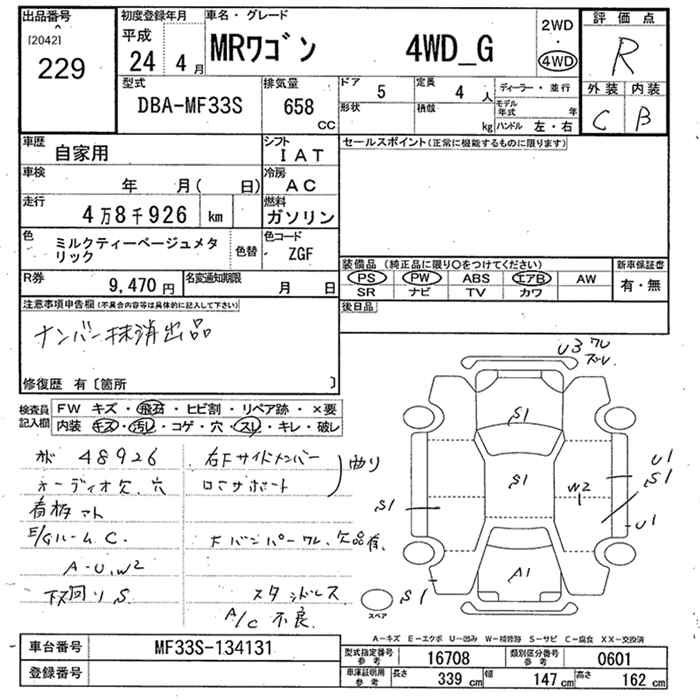 出品番号
[2042]
229
初度登録年月
平成
24年 4月
車名・グレード
MRワゴン 4WD_G
2WD
・
4WD
評価点
R
外装 内装
C B
型式
DBA-MF33S
排気量
658 CC
ドア 5
形状
定員 4 人
積載 kg
ディーラー・並行
モデル年式 年
ハンドル 左・右
車歴 自家用
シフト IAT
セールスポイント(正常に機能するものに限ります)
車検 年 月( 日)
冷房 AC
走行 4万8千926 km
燃料 ガソリン
色 ミルクティーベージュメタリック
色替
色コード ZGF
R券 9,470円
名変通知期限 月 日
装備品 (純正品に限り○をつけてください)
新車保証書
PS PW ABS エアB AW
有・無
SR ナビ TV カワ
後日品
注意事項申告欄(不具合内容等は具体的に記入して下さい)
ナンバー抹消出品
修復歴 有〔箇所 〕
検査員記入欄
FW キズ・飛石・ヒビ割・リペア跡・×要
内装 キズ・汚レ・コゲ・穴・スレ・キレ・破レ
48926
右Fサイドメンバー
曲り
オーディオ欠、穴
ロアサポート
E/Gルーム C.
Fバンパーワレ、欠品有、
A-U、W2
下回り S.
スタッドレス
A/C 不良
U3 ワレ
ズレ
S1
S1
U1
S1
W2
S1
U1
A1
S1
スペア
A-キズ E-エクボ U-凹み W-補修跡 S-サビ C-腐食 XX-交換済
車台番号 MF33S-134131
登録番号
型式指定番号参考 16708
類別区分番号参考 0601
車庫証明用参考 長さ 339 cm 幅 147 cm 高さ 162 cm